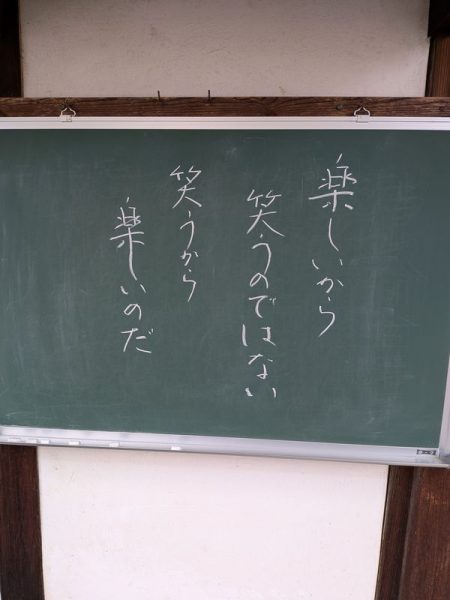 楽しいから
笑うのではない
笑うから
楽しいのだ